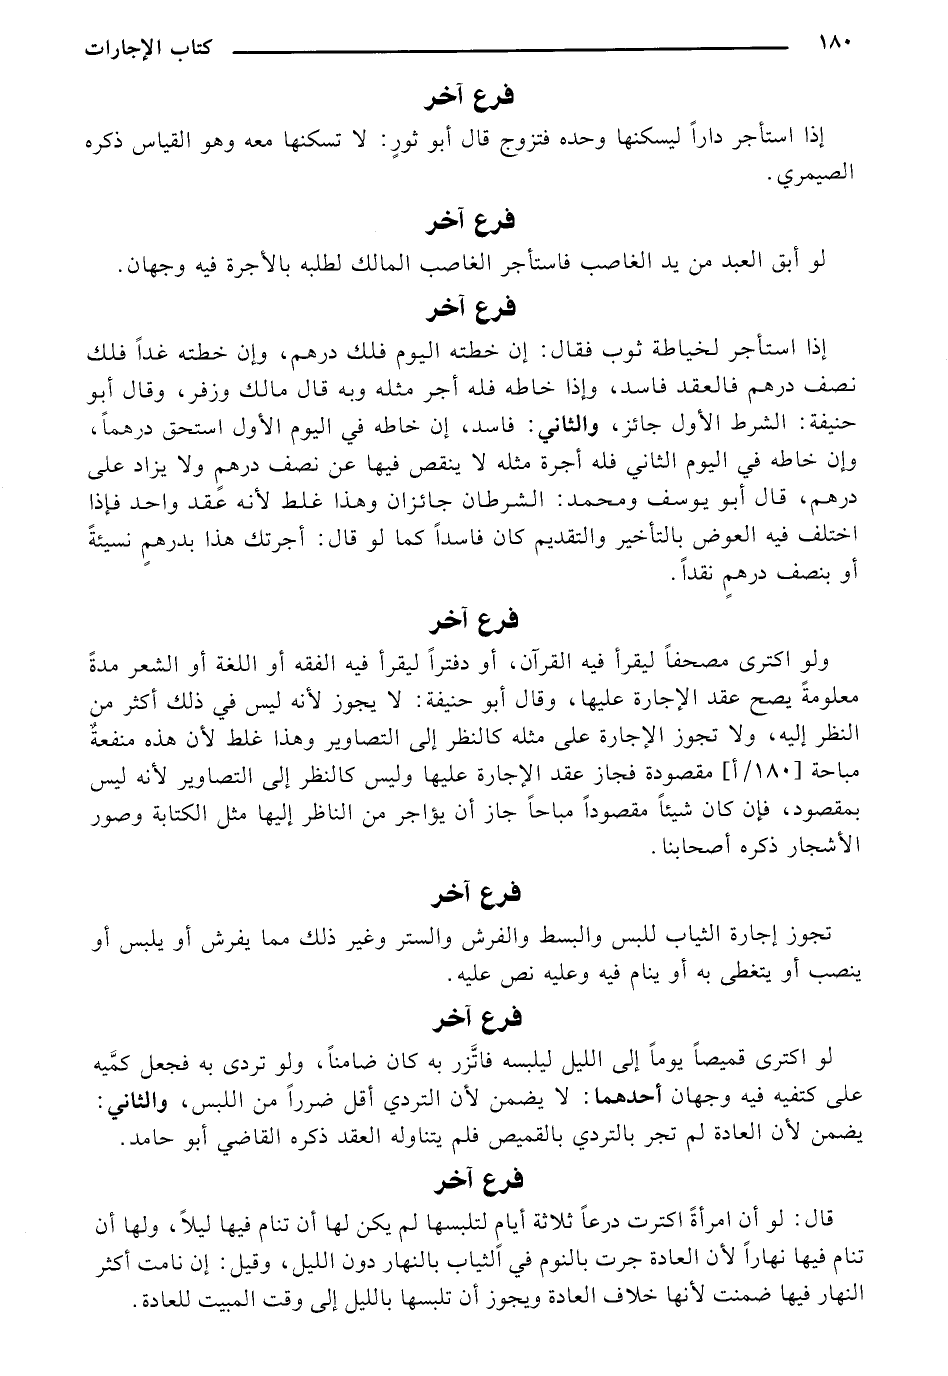 ١٨٠ كتاب الإجارات
فرع آخر
إذا استأجر داراً ليسكنها وحده فتزوج قال أبو ثورٍ: لا تسكنها معه وهو القياس ذكره
الصيمري.
فرع آخر
لو أبق العبد من يد الغاصب فاستأجر الغاصب المالك لطلبه بالأجرة فيه وجهان.
فرع آخر
إذا استأجر لخياطة ثوب فقال: إن خطته اليوم فلك درهم، وإن خطته غداً فلك
نصف درهم فالعقد فاسد، وإذا خاطه فله أجر مثله وبه قال مالك وزفر، وقال أبو
حنيفة: الشرط الأول جائز، والثاني: فاسد، إن خاطه في اليوم الأول استحق درهماً،
وإن خاطه في اليوم الثاني فله أجرة مثله لا ينقص فيها عن نصف درهمٍ ولا يزاد على
درهم، قال أبو يوسف ومحمد: الشرطان جائزان وهذا غلط لأنه عقد واحد فإذا
اختلف فيه العوض بالتأخير والتقديم كان فاسداً كما لو قال: أجرتك هذا بدرهمٍ نسيئةً
أو بنصف درهمٍ نقداً.
فرع آخر
ولو اكترى مصحفاً ليقرأ فيه القرآن، أو دفتراً ليقرأ فيه الفقه أو اللغة أو الشعر مدةً
معلومةً يصح عقد الإجارة عليها، وقال أبو حنيفة: لا يجوز لأنه ليس في ذلك أكثر من
النظر إليه، ولا تجوز الإجارة على مثله كالنظر إلى التصاوير وهذا غلط لأن هذه منفعةٌ
مباحة [١٨٠/أ] مقصودة فجاز عقد الإجارة عليها وليس كالنظر إلى التصاوير لأنه ليس
بمقصود، فإن كان شيئاً مقصوداً مباحاً جاز أن يؤاجر من الناظر إليها مثل الكتابة وصور
الأشجار ذكره أصحابنا.
فرع آخر
تجوز إجارة الثياب للبس والبسط والفرش والستر وغير ذلك مما يفرش أو يلبس أو
ينصب أو يتغطى به أو ينام فيه وعليه نص عليه.
فرع آخر
لو اكترى قميصاً يوماً إلى الليل ليلبسه فاتَّزر به كان ضامناً، ولو تردى به فجعل كمَّيه
على كتفيه فيه وجهان أحدهما: لا يضمن لأن التردي أقل ضرراً من اللبس، والثاني:
يضمن لأن العادة لم تجر بالتردي بالقميص فلم يتناوله العقد ذكره القاضي أبو حامد.
فرع آخر
قال: لو أن امرأةً اكترت درعاً ثلاثة أيام لتلبسها لم يكن لها أن تنام فيها ليلاً، ولها أن
تنام فيها نهاراً لأن العادة جرت بالنوم في الثياب بالنهار دون الليل، وقيل: إن نامت أكثر
النهار فيها ضمنت لأنها خلاف العادة ويجوز أن تلبسها بالليل إلى وقت المبيت للعادة.